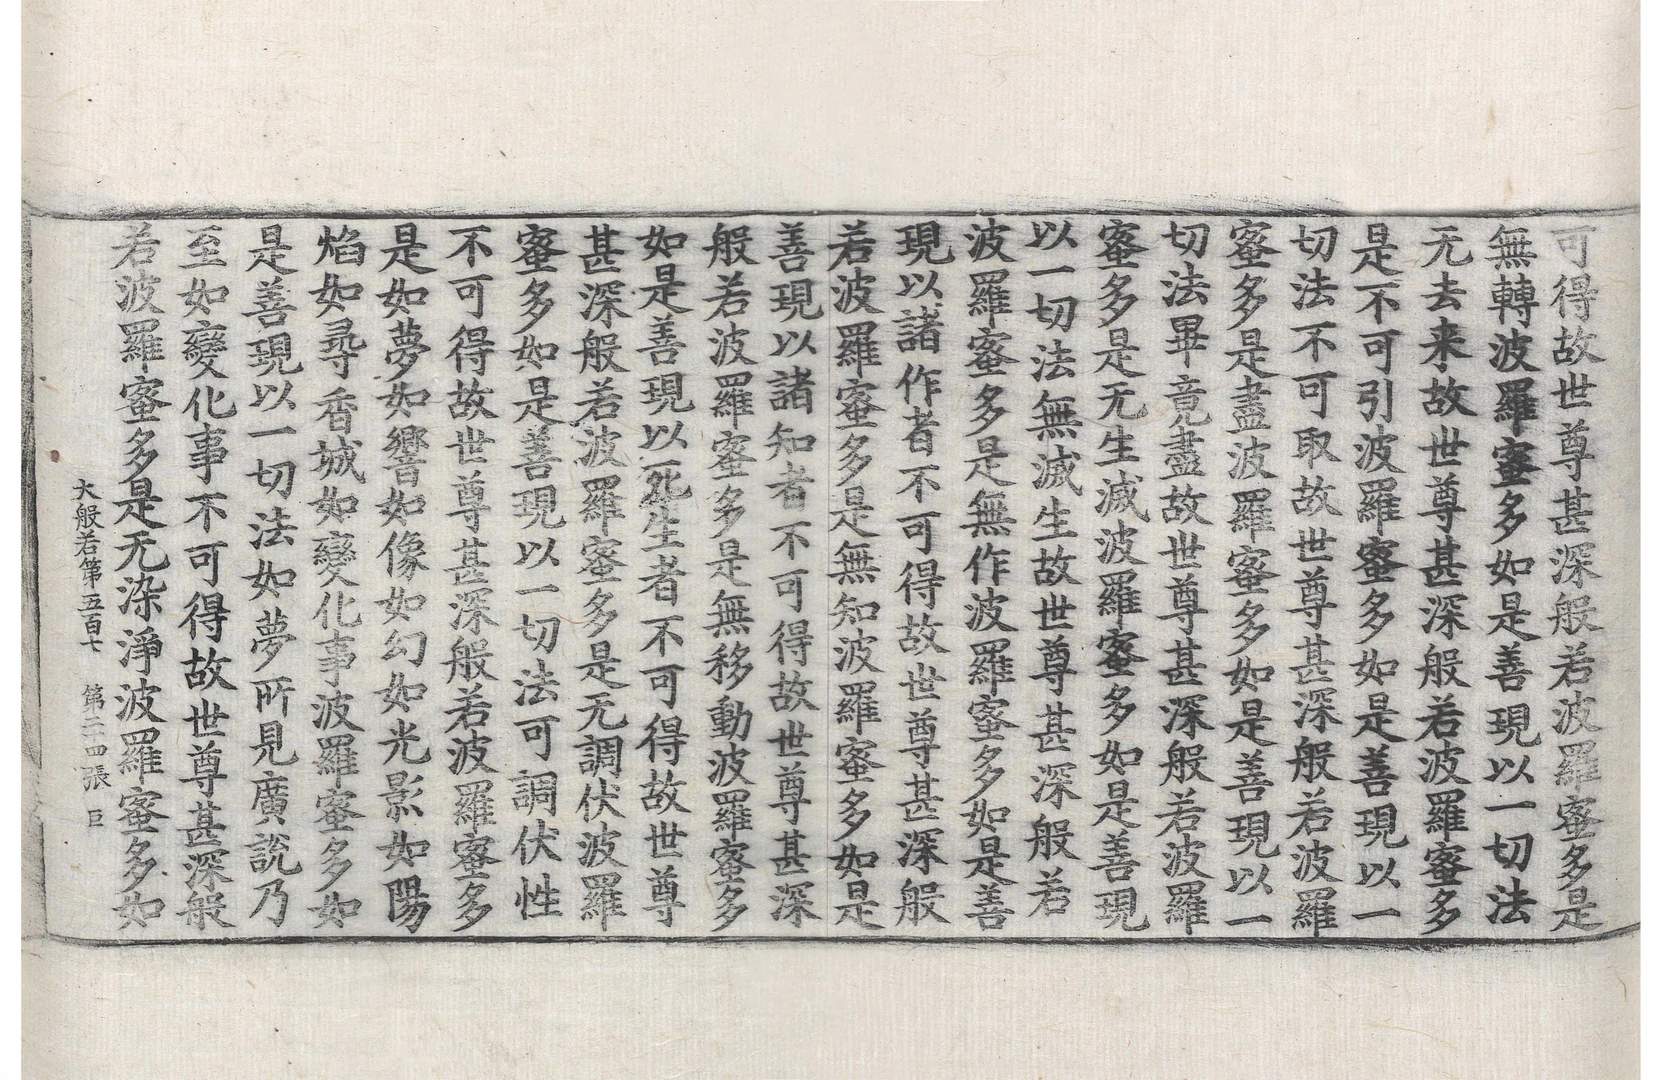 可得故世尊甚深般若波羅蜜多是
無轉波羅蜜多如是善現以一切法
无去来故世尊甚深般若波羅蜜多
是不可引波羅蜜多如是善現以一
切法不可取故世尊甚深般若波羅
蜜多是盡波羅蜜多如是善現以一
切法畢竟盡故世尊甚深般若波羅
蜜多是无生滅波羅蜜多如是善現
以一切法無滅生故世尊甚深般若
波羅蜜多是無作波羅蜜多如是善
現以諸作者不可得故世尊甚深般
若波羅蜜多是無知波羅蜜多如是
善現以諸知者不可得故世尊甚深
般若波羅蜜多是無移動波羅蜜多
如是善現以死生者不可得故世尊
甚深般若波羅蜜多是无調伏波羅
蜜多如是善現以一切法可調伏性
不可得故世尊甚深般若波羅蜜多
是如夢如響如像如幻如光影如陽
焰如尋香城如變化事波羅蜜多如
是善現以一切法如夢所見廣說乃
至如變化事不可得故世尊甚深般
若波羅蜜多是无染淨波羅蜜多如
大般若第五百七 第二四張 巨